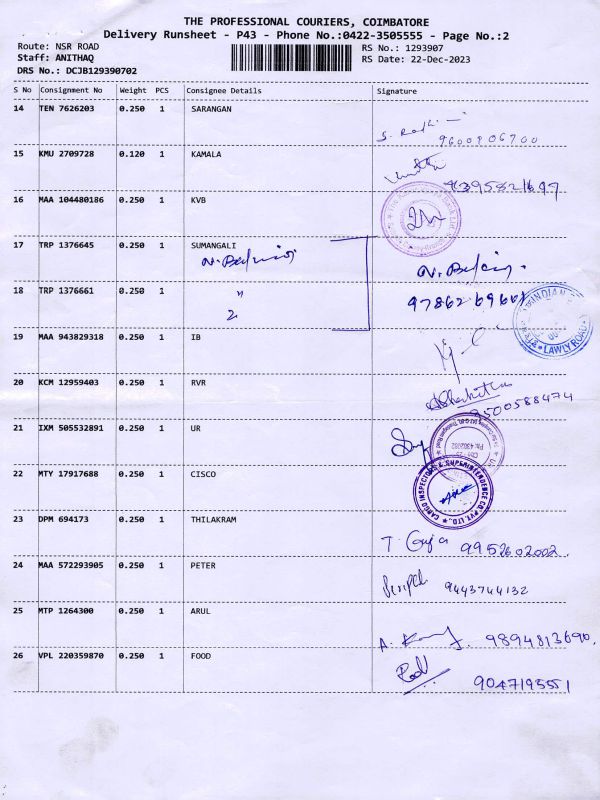 THE PROFESSIONAL COURIERS, COIMBATORE
Delivery Runsheet - P43 - Phone No.:0422-3505555 - Page No.:2
Route: NSR ROAD
RS No.: 1293907
Staff: ANITHAQ
RS Date: 22-Dec-2023
DRS No.: DCJB129390702
S No Consignment No Weight PCS Consignee Details Signature
14 TEN 7626203 0.250 1 SARANGAN
9600906700
15 KMU 2709728 0.120 1 KAMALA
16 MAA 104480186 0.250 1 KVB
17 TRP 1376645 0.250 1 SUMANGALI
18 TRP 1376661 0.250 1
19 MAA 943829318 0.250 1 IB
LAWLY ROAD
20 KCM 12959403 0.250 1 RVR
9500588474
21 IXM 505532891 0.250 1 UR
22 MTY 17917688 0.250 1 CISCO
CARGO INSPECTORS & SUPERINTENDENCE CO. PVT. LTD.,
23 DPM 694173 0.250 1 THILAKRAM
9952602002.
24 MAA 572293905 0.250 1 PETER
9443744132
25 MTP 1264300 0.250 1 ARUL
9894813690,
26 VPL 220359870 0.250 1 FOOD
9047195551